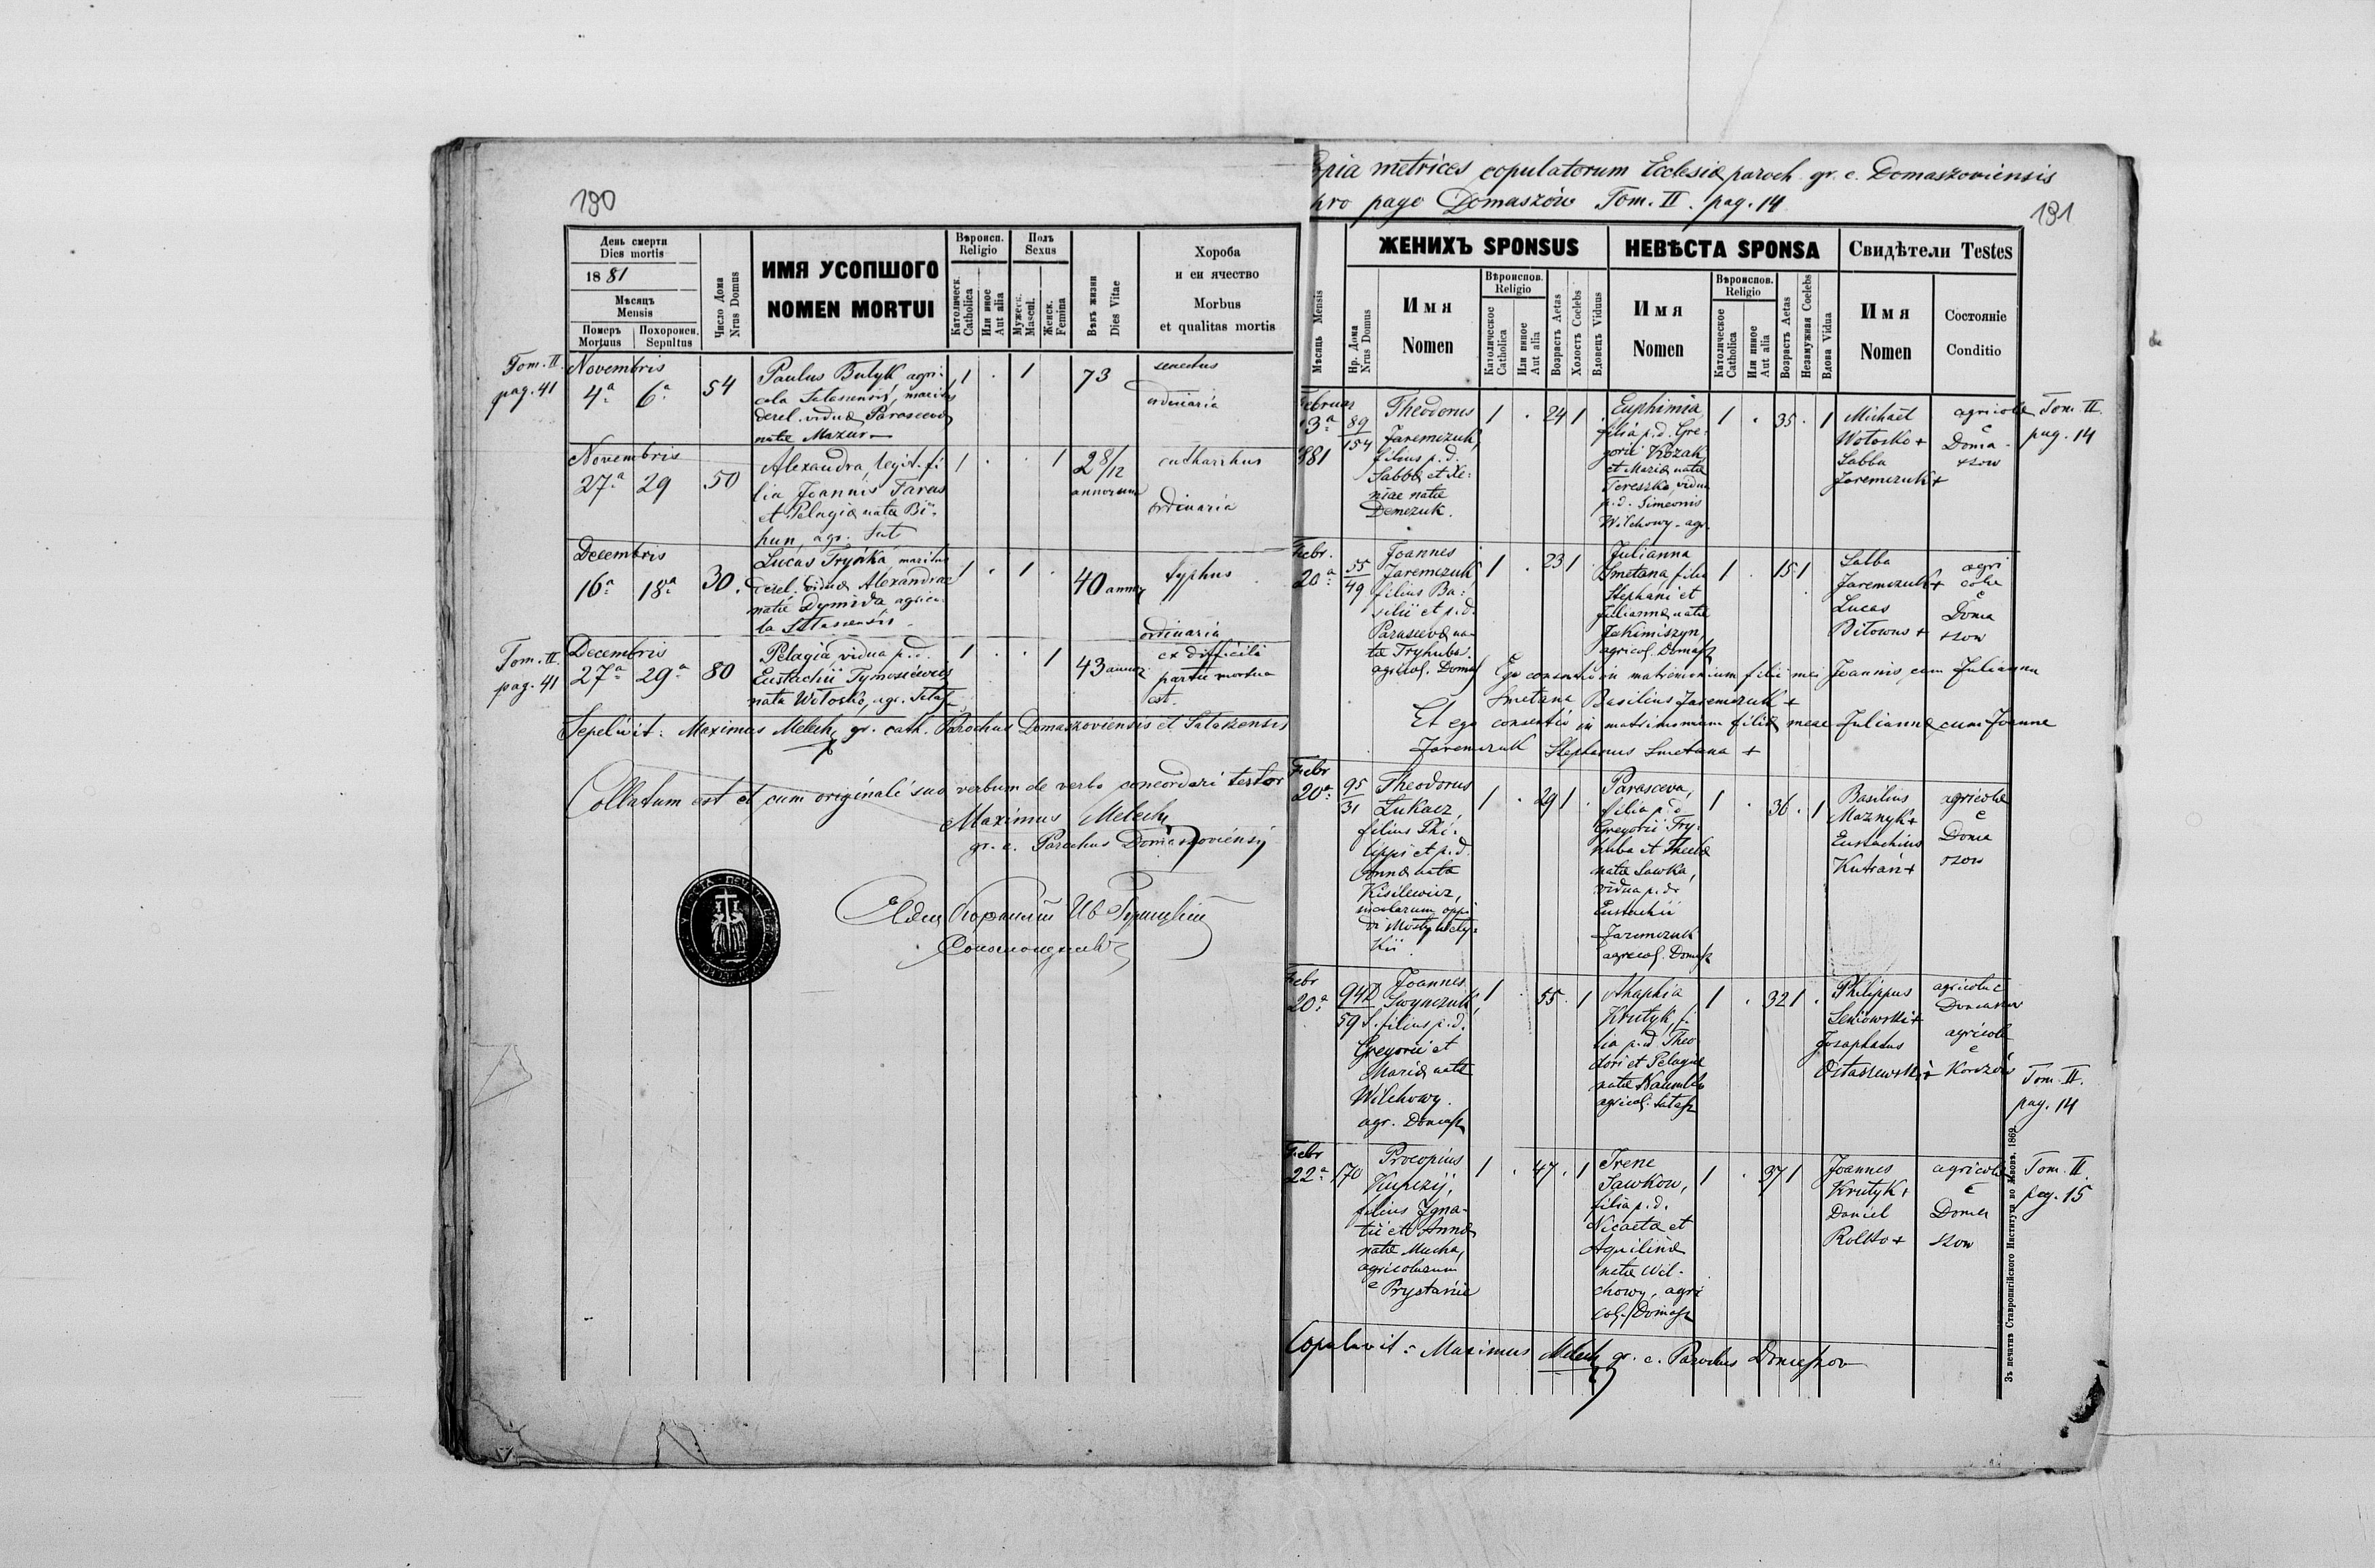 190
День смерти
Dies mortis
1881
Мѣсяць
Mensis
Померъ Похоронен.
Mortuus Sepultus
Число Дома
Nrus Domus
ИМЯ УСОПШОГО
NOMEN MORTUI
Вѣроисп.
Religio
Католическ.
Catholica
Или иное
Aut alia
Полъ
Sexus
Мужеск.
Mascul.
Женск.
Femina
Вѣкъ жизни
Dies Vitae
Хороба
и еи ячество
Morbus
et qualitas mortis
Tom. II.
pag. 41
Novembris
4ª 6ª
54
Paulus Butyk, agri-
cola Salasiensis, maritus
derel. viduæ Parascevæ
natæ Mazur
1 . 1
73
senectus
ordinaria
Novembris
27ª 29
50
Alexandra, legit. fi
lia Joannis Taras
et Pelagiæ natæ Bi-
hun, agr. Sat
1 . . 1
2 8/12
annorum
catharrhus
ordinaria
Decembris
16ª 18ª
30.
Lucas Tryńka, maritus
derel. viduæ Alexandrae
natæ Dymida agrico-
la Salasiensis
1 . 1 .
40 annor
typhus
ordinaria
Tom. II.
pag. 41
Decembris
27ª 29ª
80
Pelagia vidua p. d.
Eustachii Tymosiewicz
nata Wołoszko, agr. Salasz
1 . . 1
43 annor.
ex difficili
partu mortua
est.
Sepelivit: Maximus Melech, gr. cath. Parochus Domaszoviensis et Salaszensis
Collatum est et cum originali suo verbum de verbo concordari testor
Maximus Melech
gr. c. Parochus Domaszoviensis
Copia metrices copulatorum Ecclesiæ paroch. gr. c. Domaszoviensis
pro pago Domaszów Tom. II. pag. 14
191
Мѣсяць Mensis
Нр. Дома
Nrus Domus
ЖЕНИХЪ SPONSUS
Имя
Nomen
Вѣроиспов.
Religio
Католическое
Catholica
Или иное
Aut alia
Возрастъ Aetas
Холостъ Coelebs
Вдовецъ Viduus
НЕВѢСТА SPONSA
Имя
Nomen
Вѣроиспов.
Religio
Католическое
Catholica
Или иное
Aut alia
Возрастъ Aetas
Незамужная Coelebs
Вдова Vidua
Свидѣтели Testes
Имя
Nomen
Состояніе
Conditio
Februar
13ª
881
89
154
Theodorus
Jaremczuk,
filius p. d.
Sabbæ et Xe-
niae natæ
Demczuk.
1 . 24 1 .
Euphimia
filia p. d. Gre-
gorii Kozak
et Mariæ natæ
Tereszko, vidua
p. d. Simeonis
Wilchowy. agr.
1 . 35 . 1
Michaël
Wołoszko +
Sabba
Jaremczuk +
agricolæ
e
Doma-
szow
Tom. II.
pag. 14
Febr.
20ª
55
49
Joannes
Jaremczuk
filius Ba-
silii et p. d.
Parascevæ na-
tæ Tryhuba.
agricol. Domasz
1 . 23 1
Julianna
Smetana filia
Stephani et
Juliannæ natæ
Jakimiszyn,
agricol. Domasz
1 . 15 1 .
Sabba
Jaremczuk +
Lucas
Bitowus +
agri
colæ
e
Doma
szow
Ego consentio in matrimonium filii mei Joannis cum Julianna
Smetana Basilius Jaremczuk +
Et ego consentio in matrimonium filiæ meae Juliannæ cum Joanne
Jaremczuk Stephanus Smetana +
Febr
20ª
95
31
Theodorus
Łukacz,
filius Phi-
lippi et p. d.
Annæ natæ
Kisilewicz,
incolarum oppi
di Mosty wely-
kii
1 . 29 1 .
Parasceva,
filia p. d.
Gregorii Try-
huba et Theclæ
natæ Sawka,
vidua p. d.
Eustachii
Jaremczuk
agricol. Domasz
1 . 36 . 1
Basilius
Maznyk +
Eustachius
Kutran +
agricolæ
e
Doma
szow
Febr
20ª
94 D
59 S.
Joannes
Swynczuk,
filius p. d.
Gregorii et
Mariæ natæ
Wilchowy.
agr. Domasz
1 . 55 . 1
Ahaphia
Krutyk, fi-
lia p. d. Theo
dori et Pelagiæ
natæ
agricol. Salasz
1 . 32 1 .
Philippus
Seniowski +
Josaphatus
Ostaszewski +
agricola e
Domaszow
agricola
e
Korczów
Tom. II.
pag. 14
Febr
22ª
170
Procopius
Kupczij,
filius Igna-
tii et Annæ
natæ Mucha,
agricolarum
e Prystanie
1 . 47 . 1
Irene
Sawkow,
filia p. d.
Nicaeta et
Aquilinæ
natæ Wil-
chowy, agri
col. Domasz
1 . 37 1
Joannes
Krutyk +
Daniel
Rolko +
agricolæ
e
Doma
szow
Tom. II.
pag. 15
Copulavit: Maximus Melech gr. c. Parochus Domaszov
Зъ печатнѣ Ставропигійского Института во Львовѣ. 1869.